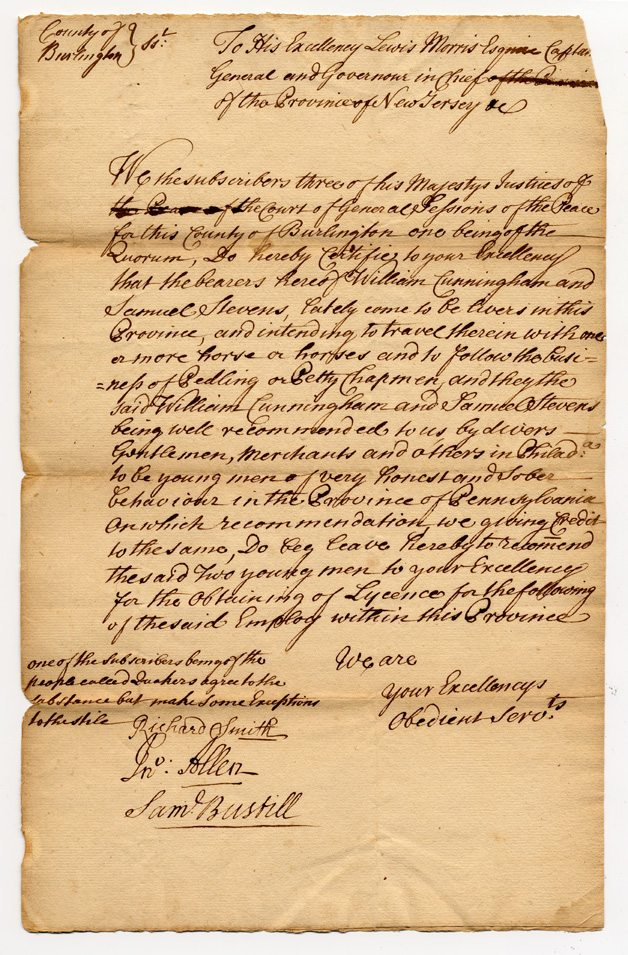 County of } Ss.t
Burlington
To His Excellency Lewis Morris Esquire Captain
General and Governour in Chief of the Province
of the Province of New Jersey &c
We the subscribers three of his Majestys Justices of
the Peace of the Court of General Sessions of the Peace
for this County of Burlington one being of the
Quorum, Do hereby Certifie to your Excellency
that the bearers hereof William Cunningham and
Samuel Stevens, lately come to be livers in this
Province, and intending to travel therein with one
or more horse or horses and to follow the busi=
=ness of Pedling or Petty Chapmen, and they the
said William Cunningham and Samuel Stevens
being well recommended to us by divers
Gentlemen, Merchants and others in Philad:a
to be young men of very honest and Sober
behaviour in the Province of Pennsylvania
On which recommendation, we giving Credit
to the same, Do beg leave hereby to recomend
the said Two young men to your Excellency
for the Obtaining of Lycence for the following
of the said Employ within this Province
We are
your Excellencys
Obedient Serv.ts
one of the subscribers being of the
people called Quakers agree to the
substance but make some Exceptions
to the stile
Richard Smith
Jno: Allen
Sam.d Bustill